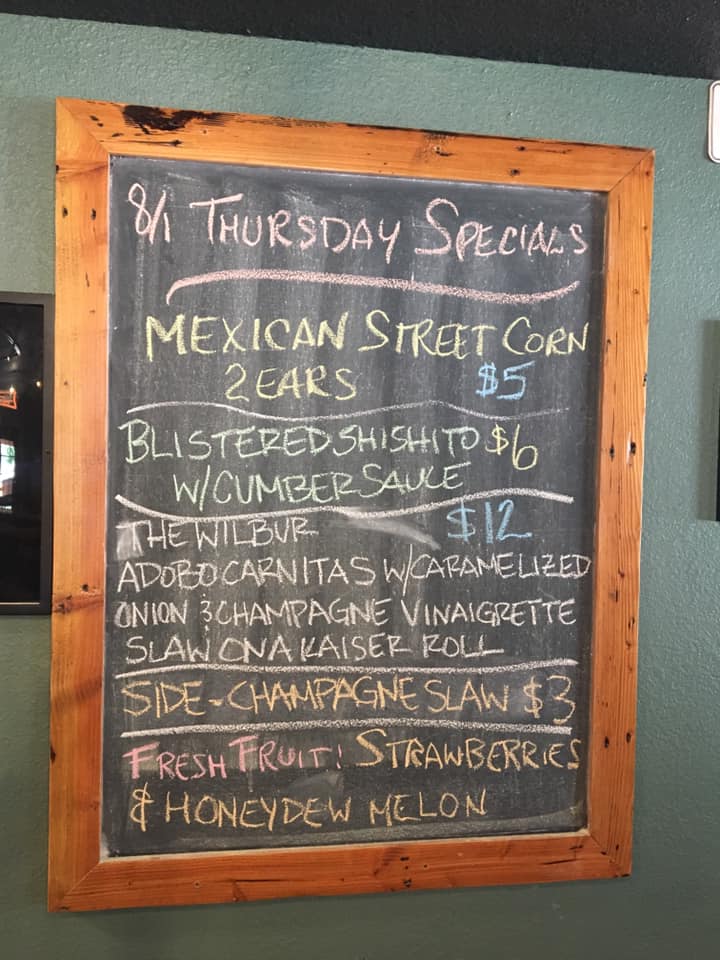 8/1 THURSDAY SPECIALS
MEXICAN STREET CORN
2 EARS $5
BLISTERED SHISHITO $6
W/CUMBER SAUCE
THE WILBUR $12
ADOBO CARNITAS W/CARAMELIZED
ONION & CHAMPAGNE VINAIGRETTE
SLAW ON A KAISER ROLL
SIDE-CHAMPAGNE SLAW $3
FRESH FRUIT! STRAWBERRIES
& HONEYDEW MELON